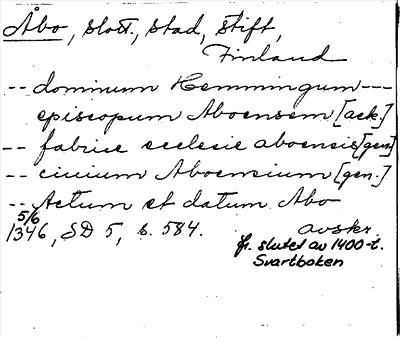 Åbo, slott, stad, stift,
Finland
-- dominum Hemmingum ---
episcopum Aboensem [ack.]
-- fabrice ecclesie aboensis [gen]
-- ciuium Aboensium [gen.]
-- Actum et datum Abo
5/6
1346, SD 5, s. 584. avskr.
fr. slutet av 1400-t.
Svartboken